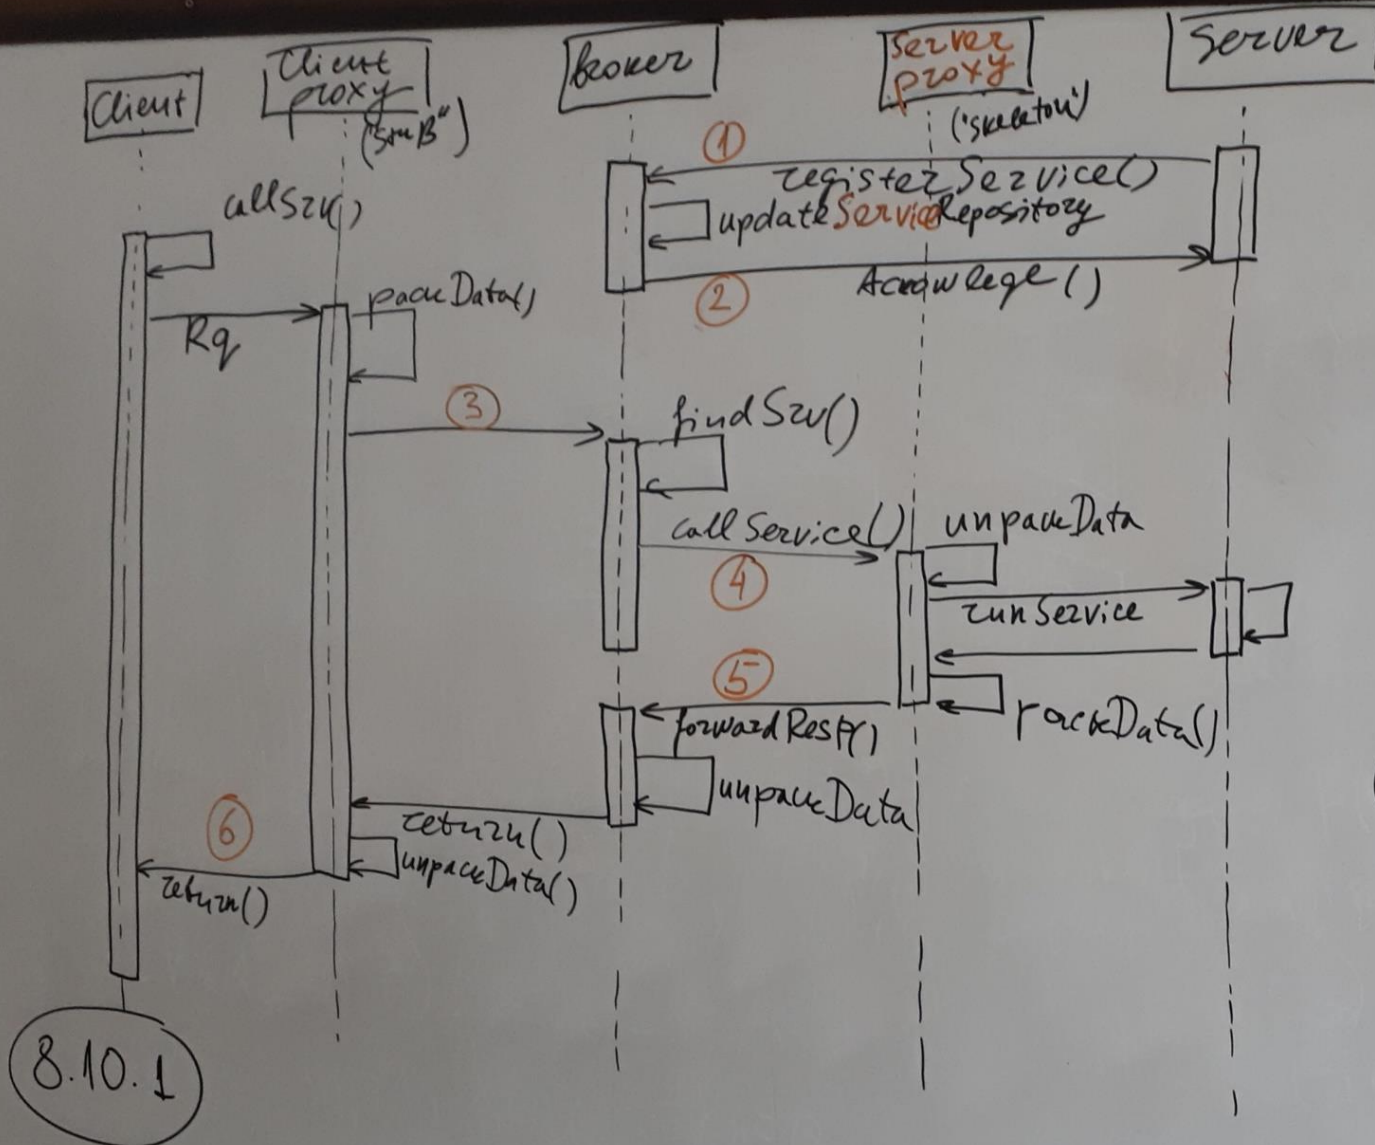 Client
Client
proxy
("StuB")
Broker
Server
proxy
('skeleton')
Server
①
registerService()
callSrv()
updateServiceRepository
②
Acknowlege()
Rq
packData()
③
findSrv()
callService()
④
unpackData
runService
⑤
forwardResp()
packData()
unpackData
return()
⑥
unpackData()
return()
8.10.1